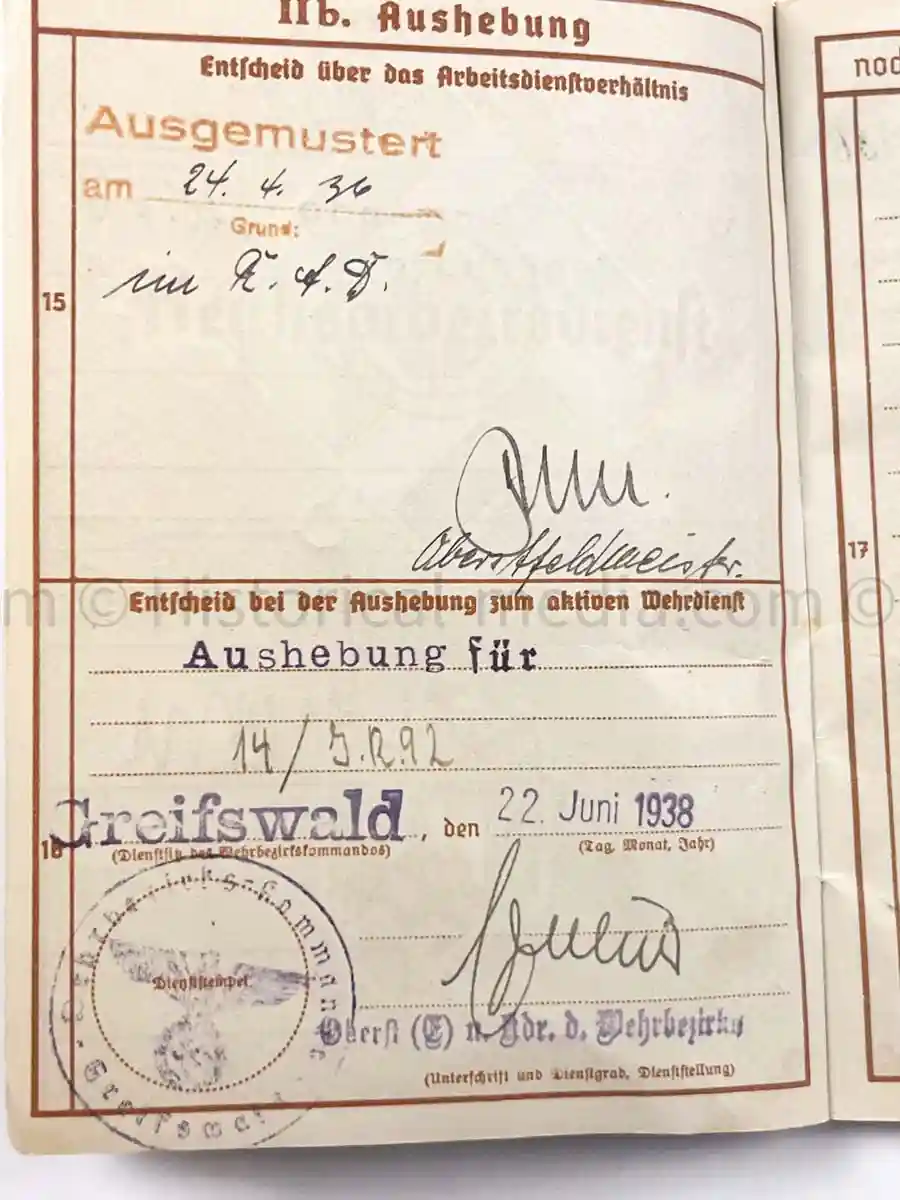 IIb. Aushebung
Entscheid über das Arbeitsdienstverhältnis
Ausgemustert
am 24. 4. 36
Grund:
im R. A. D.
15
Oberstfeldmeister.
noch
17
© Historical-media.com ©
Entscheid bei der Aushebung zum aktiven Wehrdienst
Aushebung für
14/J.R.92
Greifswald, den 22. Juni 1938
16
(Dienstsitz des Wehrbezirkskommandos)
(Tag, Monat, Jahr)
Wehrbezirks-Kommando
Dienststempel
Greifswald
Oberst (E) u. Kdr. d. Wehrbezirks
(Unterschrift und Dienstgrad, Dienststellung)